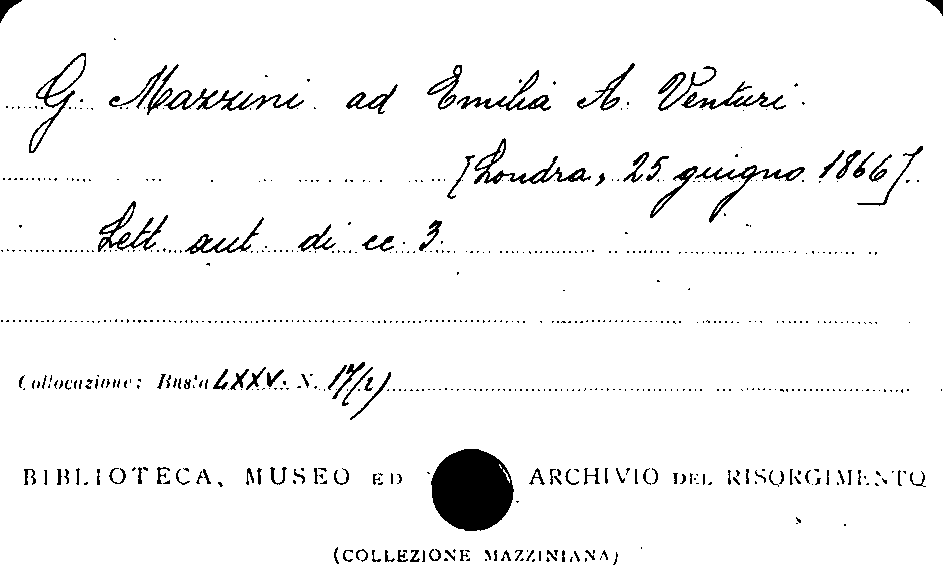 G. Mazzini ad Emilia A. Venturi.
[Londra, 25 giugno 1866].
Lett. aut. di cc. 3.
Collocazione: Busta LXXV. N. 17/2)
BIBLIOTECA, MUSEO ED ARCHIVIO DEL RISORGIMENTO
(COLLEZIONE MAZZINIANA)